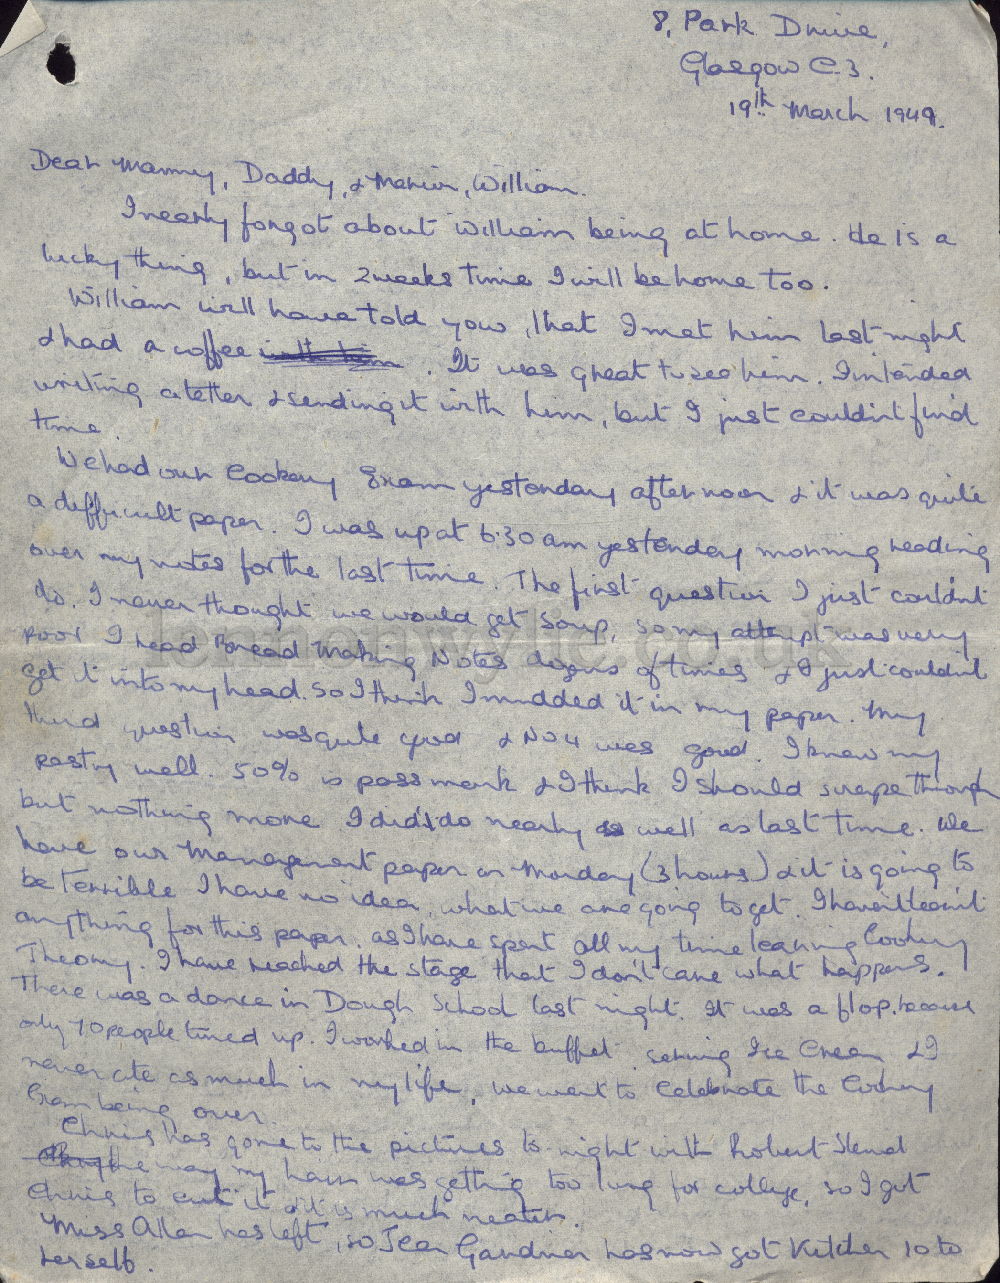 8, Park Drive,
Glasgow C.3.
19th March 1949.
Dear Mammy, Daddy, & Marion, William.
I nearly forgot about William being at home. He is a
lucky thing, but in 2 weeks time I will be home too.
William will have told you, that I met him last night
& had a coffee with him. It was great to see him. I intended
writing a letter & sending it with him, but I just couldn't find
time.
We had our Cookery Exam yesterday afternoon & it was quite
a difficult paper. I was up at 6.30 am yesterday morning reading
over my notes for the last time. The first question I just couldn't
do. I never thought we would get Soup, so my attempt was very
poor I read Bread Making Notes dozens of times & I just couldn't
get it into my head. So I think I muddled it in my paper. My
third question was quite good & No 4 was good. I knew my
pastry well. 50% is pass mark & I think I should scrape through
but nothing more. I didn't do nearly as well as last time. We
have our Management paper on Monday (3 hours) & it is going to
be Terrible I have no idea, what we are going to get. I haven't learnt
anything for this paper, as I have spent all my time learning Cookery
Theory. I have reached the stage that I don't care what happens.
There was a dance in Dough School last night. It was a flop, because
only 70 people turned up. I worked in the buffet serving Ice Cream & I
never ate as much in my life, we went to Celebrate the Cookery
Exam being over.
Chris has gone to the pictures to-night with Robert
By the way my hair was getting too long for college, so I got
Chris to cut it & it is much neater.
Miss Allan has left, so Jean Gardiner has now got Kitchen 10 to
herself.
lennonwylie.co.uk